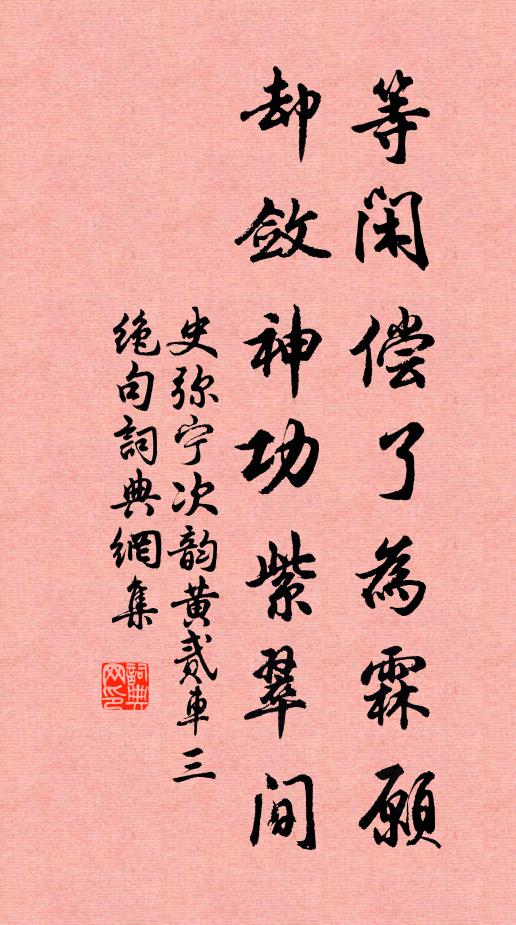 等闲偿了為霖願
却敛神功紫翠间
史弥宁次韵黄贰車三
绝句詞典網集
詞典網印